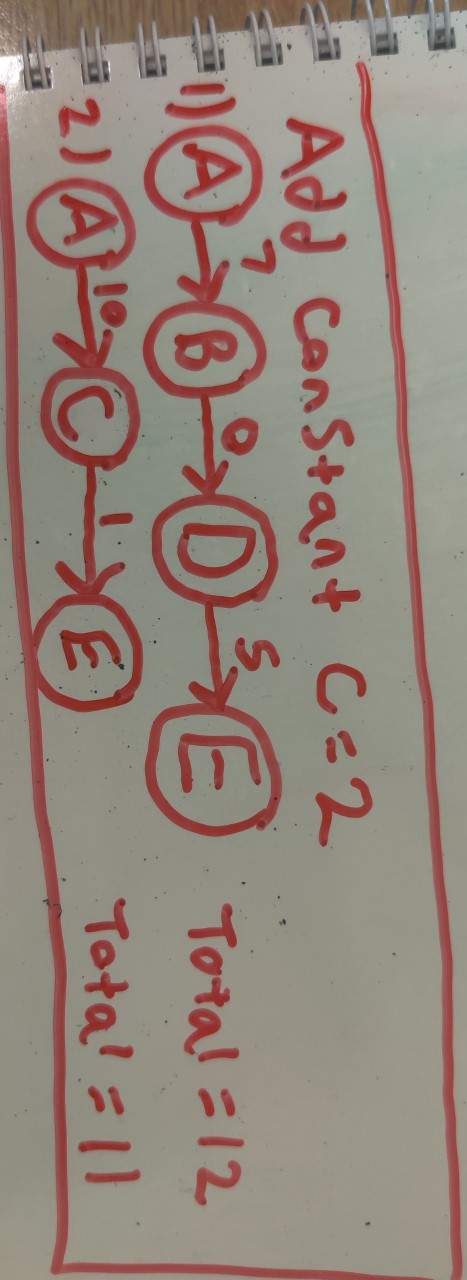 Add constant C = 2
1) A 7 B 0 D 5 E Total = 12
2) A 10 C 1 E Total = 11